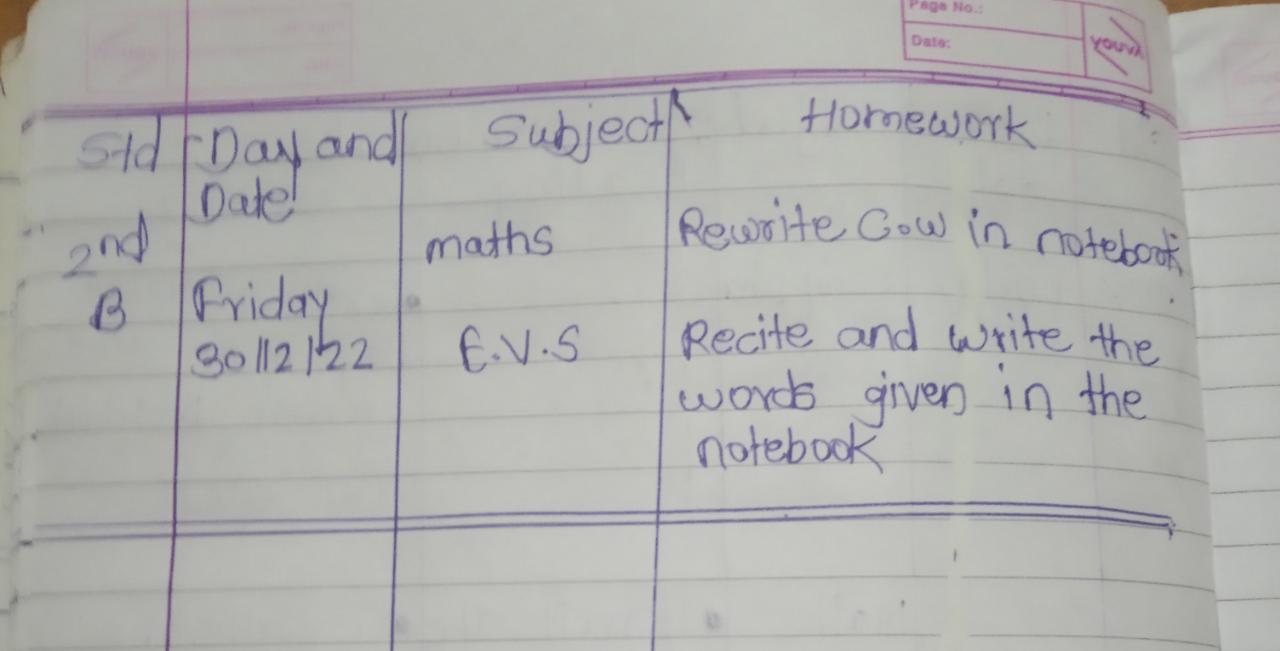 Page No.:
Date:
YOUVA
Std Day and Subject Homework
Date
2nd maths Rewrite C.W in notebook
B Friday
30/12/22 E.V.S Recite and write the
words given in the
notebook